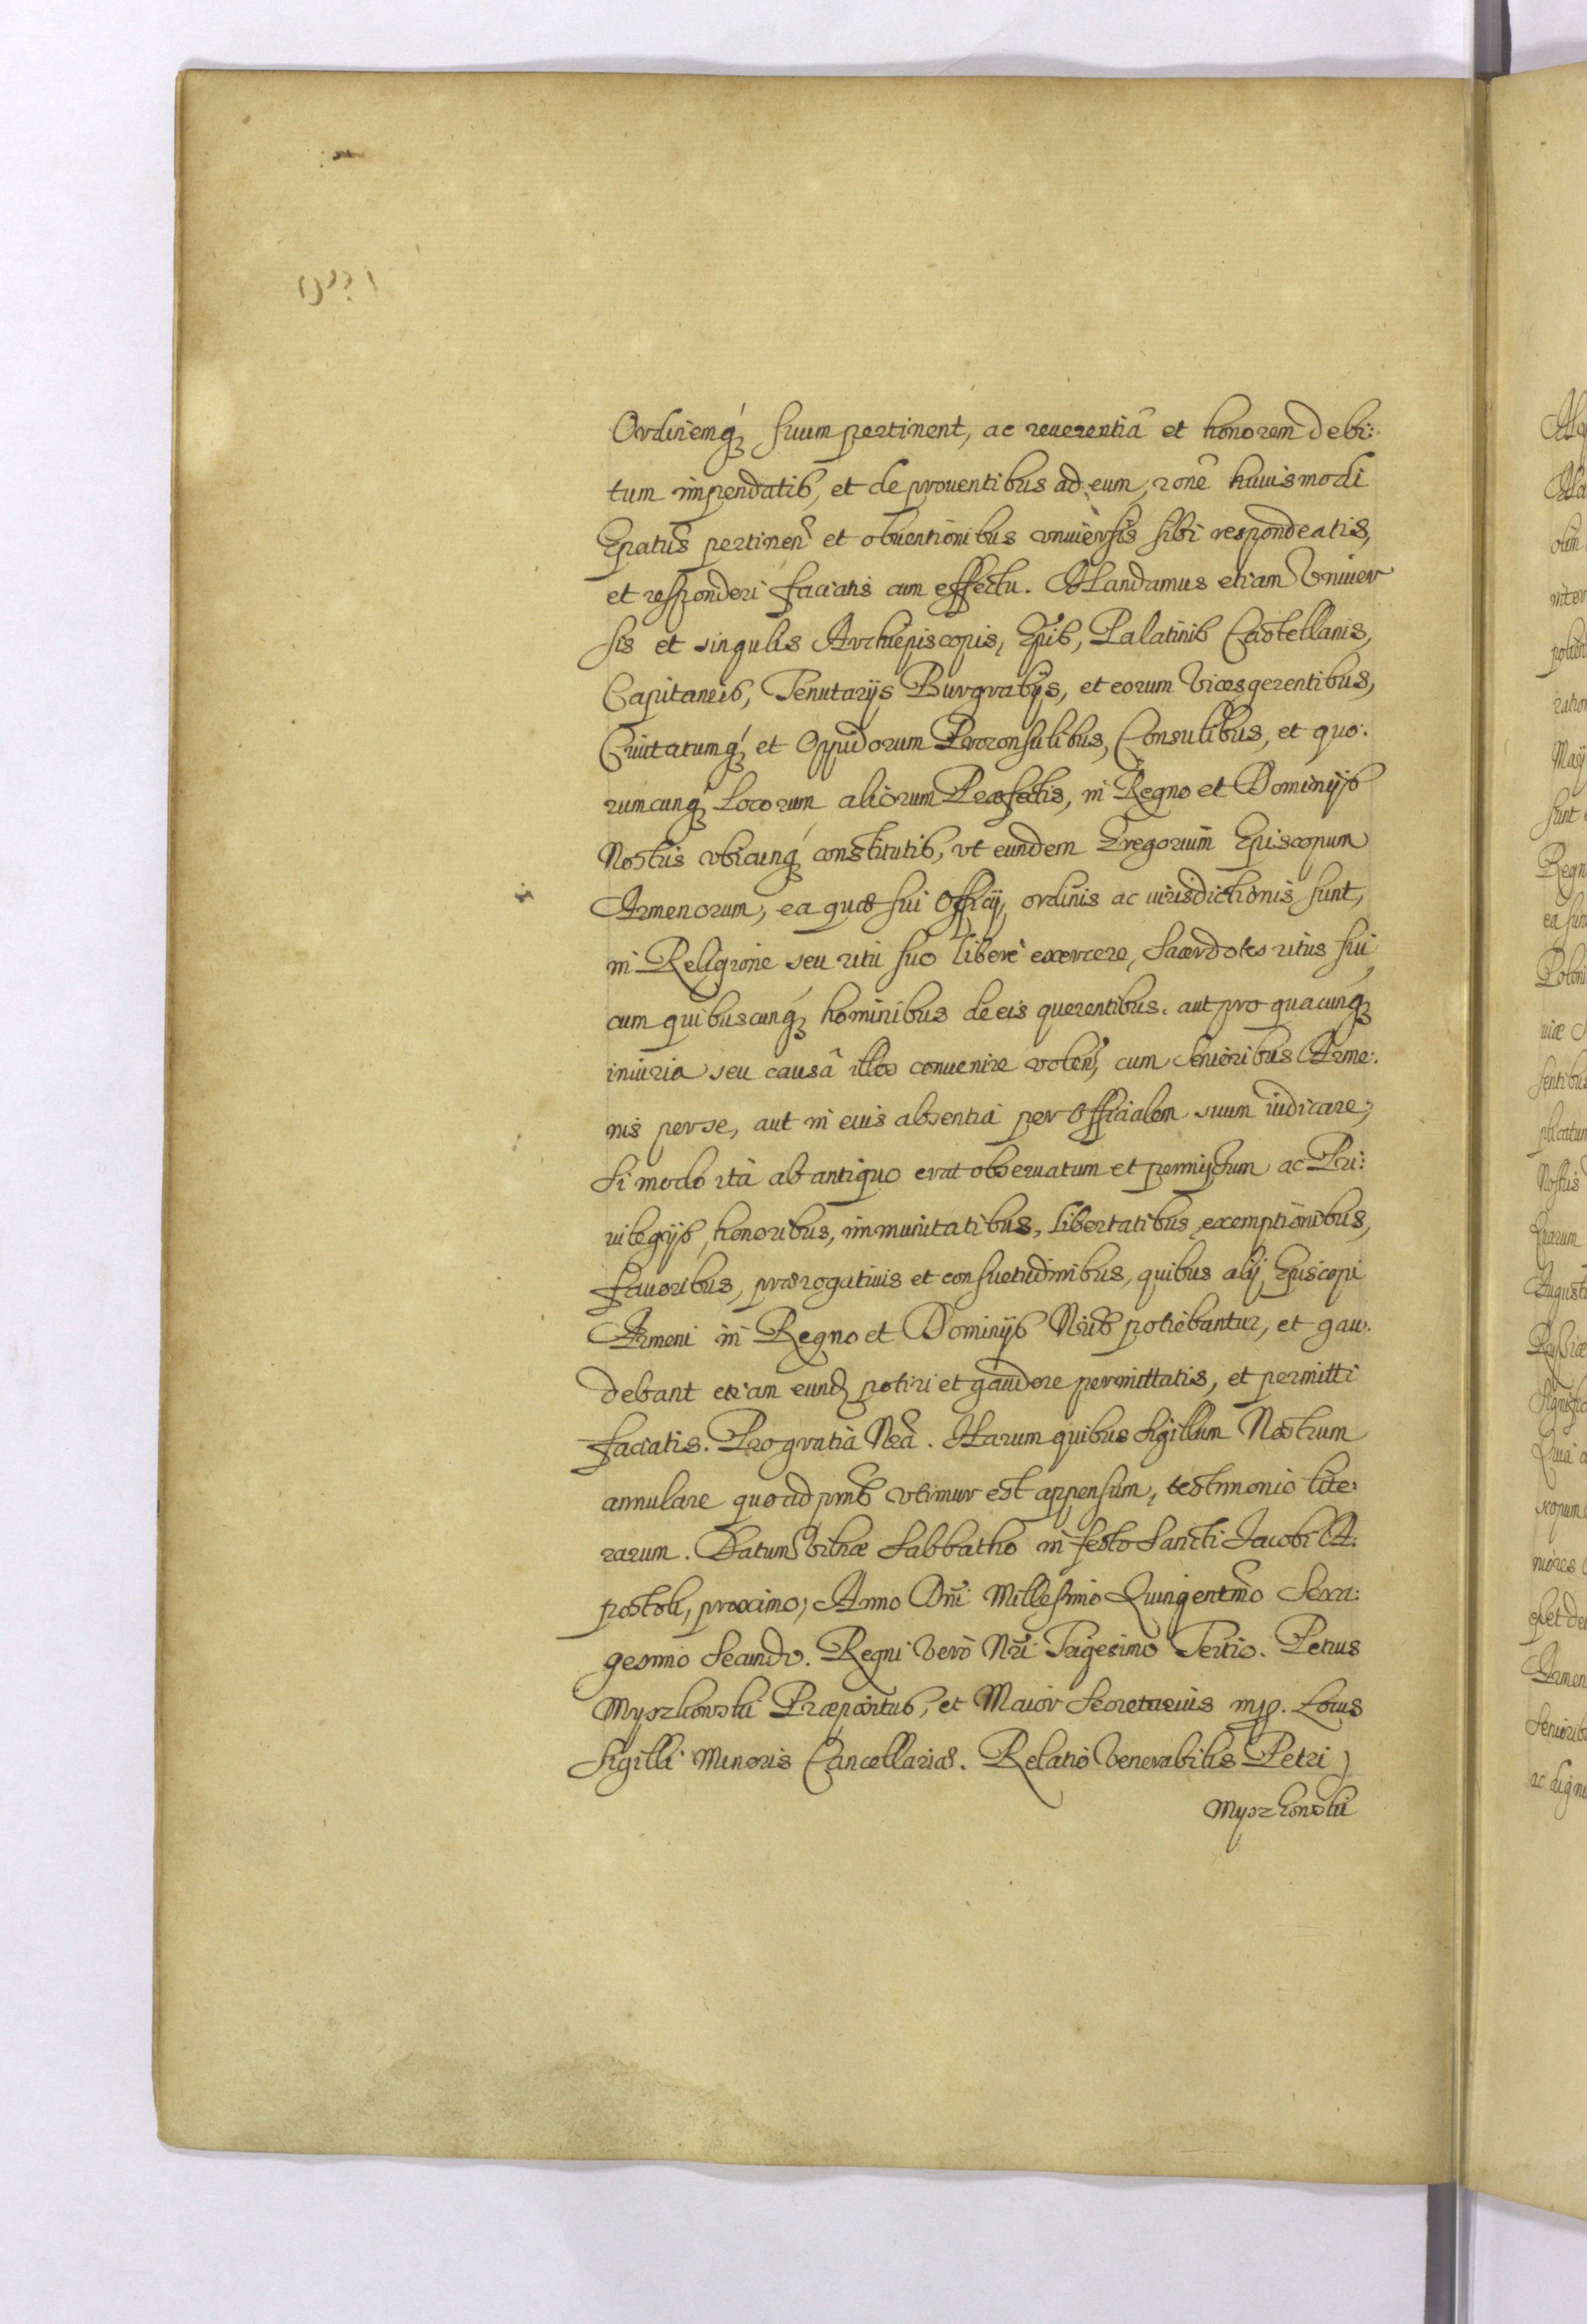 Ordinemq́ꝫ suum pertinent, ac reuerentiã et honorem debi:
tum impendatis, et de prouentibus ad eum, rone huiusmodi
Epatus pertinen̄ et obuentionibus vniuersis sibi respondeatis,
et responderi faciatis cum effectu. Mandamus etiam Vniuer
sis et singulis Archiepiscopis, Epis, Palatinis Castellanis,
Capitaneis, Tenutarijs Burgrabijs, et eorum Vicesgerentibus,
Ciuitatumq́ꝫ et Oppidorum Proconsulibus, Consulibus, et quo:
rumcunq́ꝫ Locorum aliorum Præfectis, in Regno et Dominijs
Nostris vbicunq́ꝫ constitutis, vt eundem Gregorium Episcopum
Armenorum, ea quæ sui Officij, ordinis ac iurisdictionis sunt,
in Religione seu ritu suo liberè exercere, Sacerdotes ritus sui
cum quibuscunq́ꝫ hominibus de eis querentibus, aut pro quacunq́ꝫ
iniuria seu causâ illos conuenire volen̄, cum Senioribus Arme:
nis per se, aut in eius absentia per Officialem suum iudicare,
Si modo ità ab antiquo erat obseruatum et permissum ac Pri:
uilegijs, honoribus, immunitatibus, libertatibus, exemptionibus,
fauoribus, prærogatiuis et consuetudinibus, quibus alij Episcopi
Armeni in Regno et Dominijs Nr̃is potiebantur, et gau:
debant etiam eundꝫ potiri et gaudere permittatis, et permitti
faciatis. Pro gratia Nr̃a. Harum quibus Sigillum Nostrum
annulare quo ad pñs vtimur est appensum, testimonio lite:
rarum. Datum Vilnæ Sabbatho in festo Sancti Jacobi A:
postoli, proximo; Anno Dñi Millesimo Quingentmo Sexa:
gesimo Secundo. Regni Verò Nr̃i Trigesimo Tertio. Petrus
Myszkowski Præpositus, et Maior Secretarius mp. Locus
Sigilli Minoris Cancellariæ. Relatio Venerabilis Petri
Myszkowski